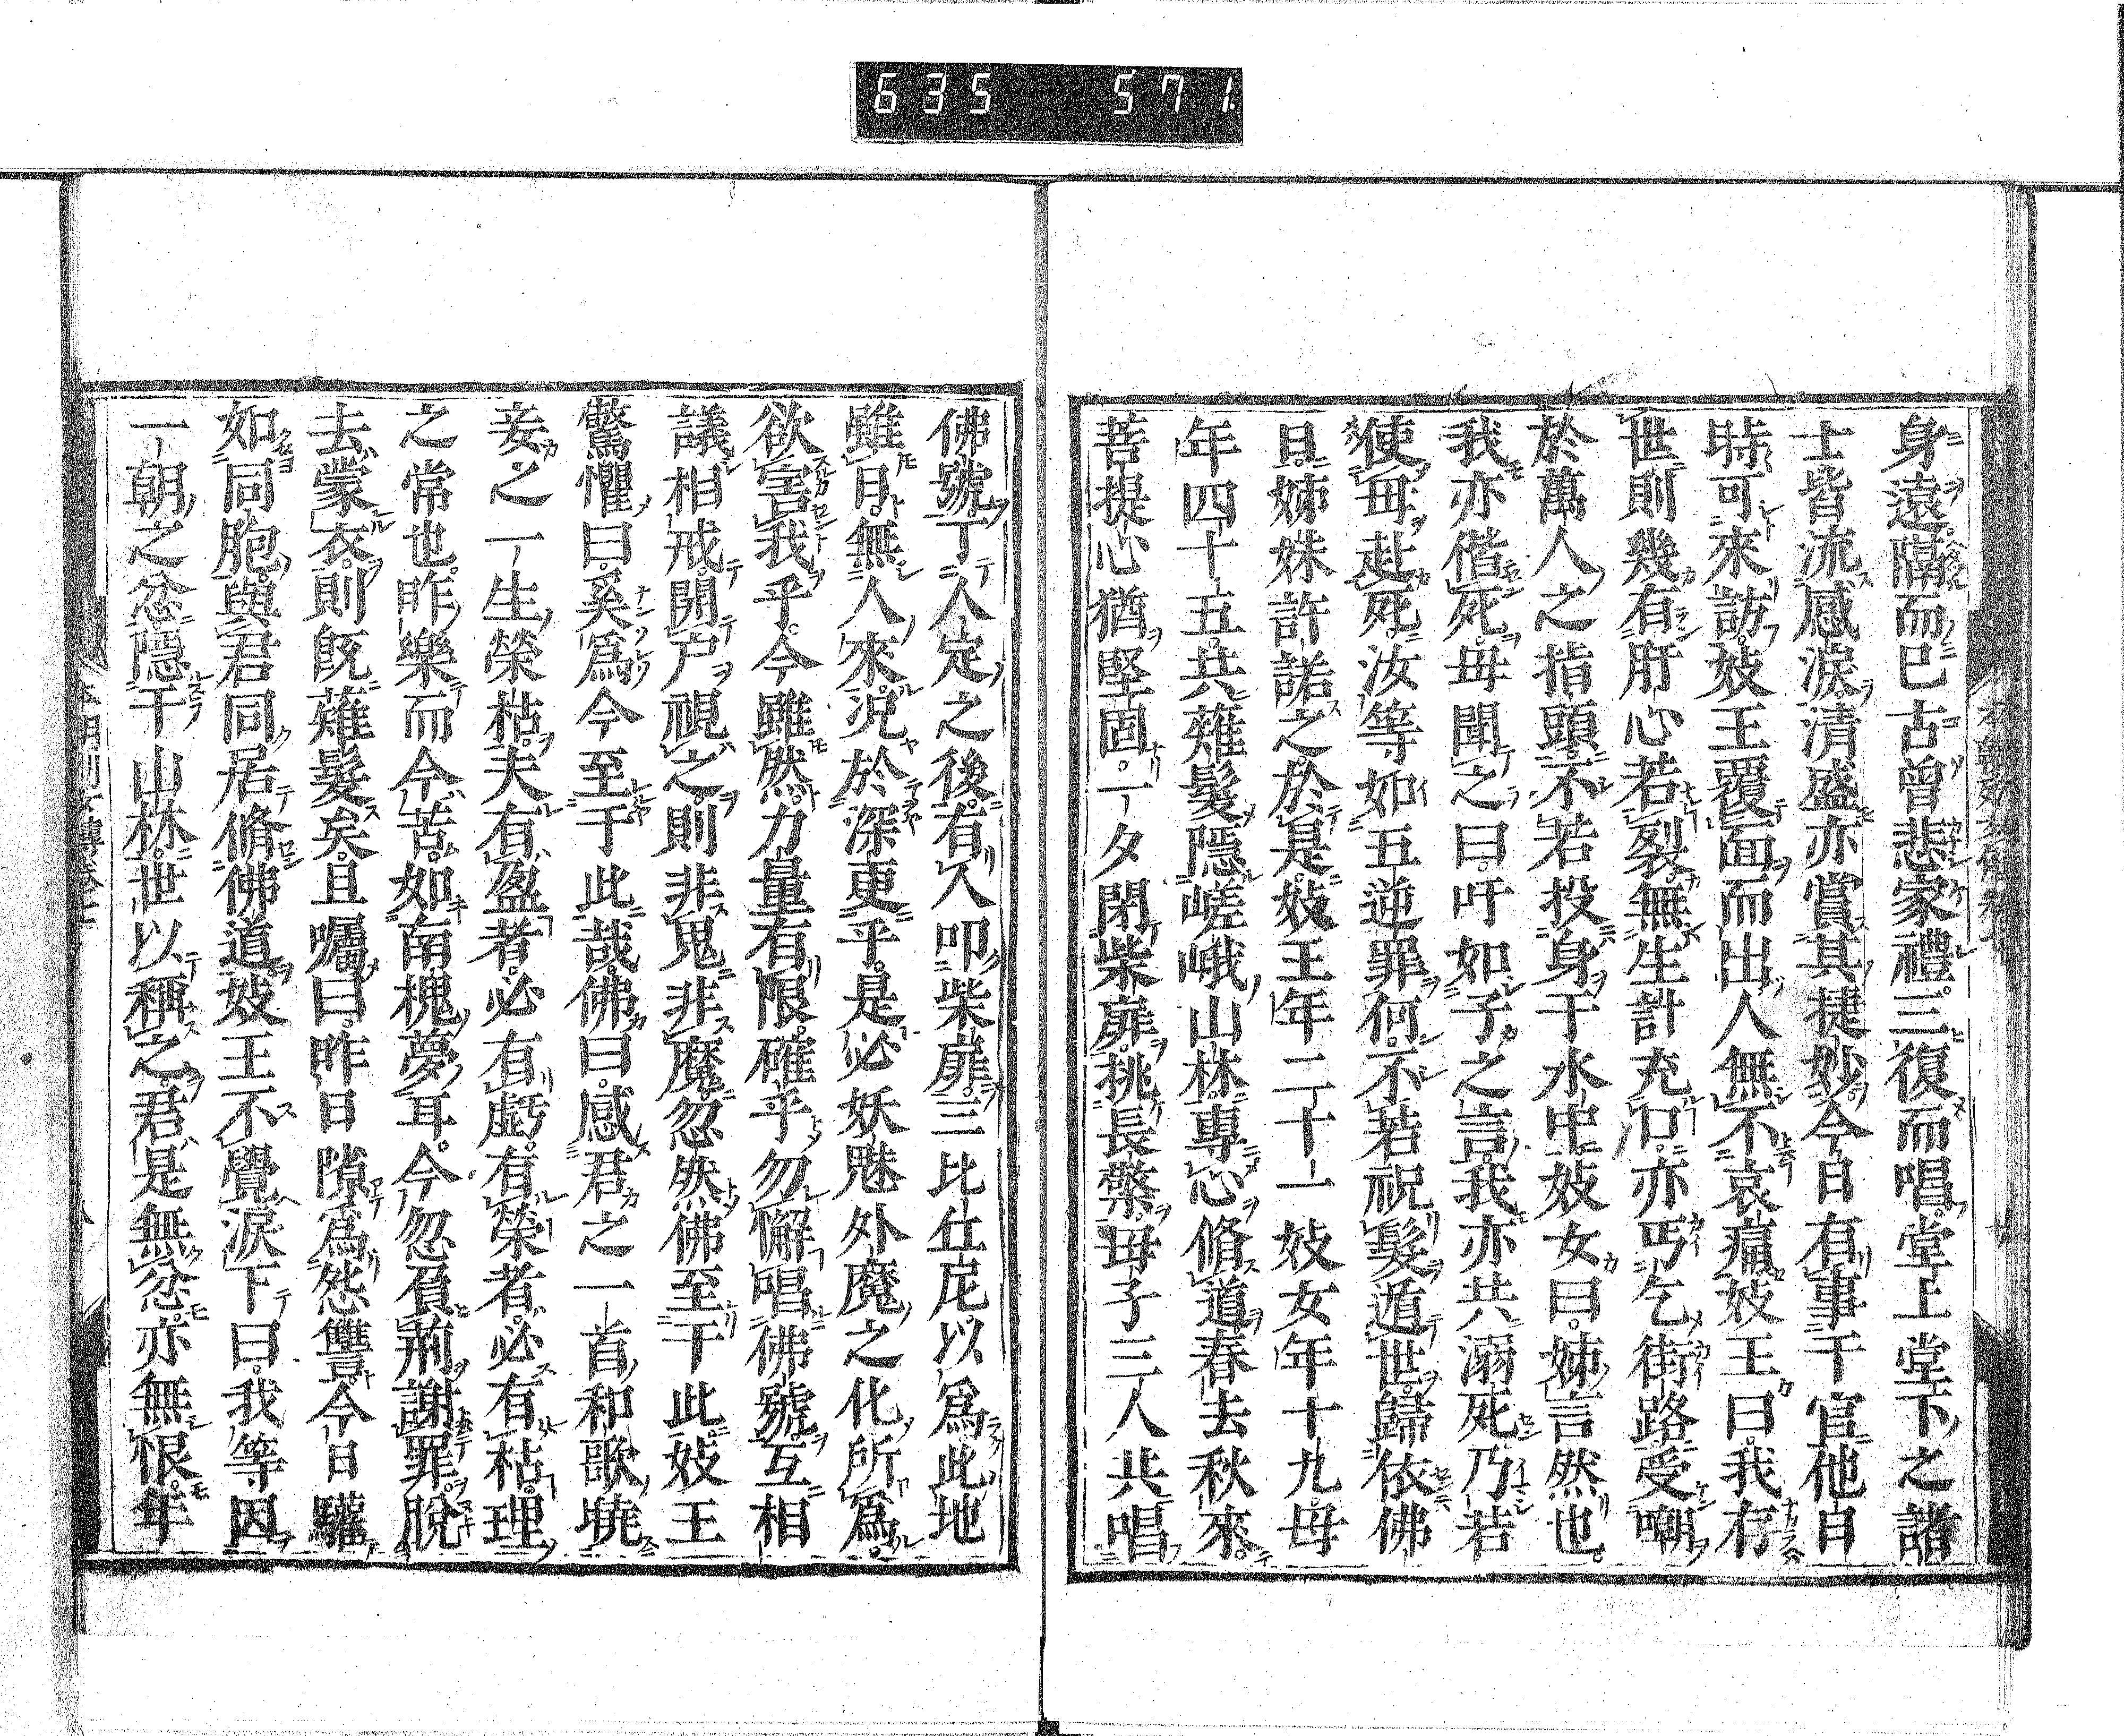 635 571
身遠。隔而已古曽悲家禮。三復而唱。堂上堂下之諸
士皆流感涙。清盛亦賞其捷妙今日有事于官他日
時可來訪。妓王覆面而出人無不哀痛妓王曰。我存
世則幾有肝心若裂。無生計充口。亦丐乞街路受嘲
於萬人之指頭。不若投身于水中。妓女曰。姉言然也。
我亦偕死。母聞之曰。吁如子之言。我亦共溺死乃若
使母赴死。汝等如五逆罪何。不若祝髮遁世。歸依佛
旦。姊妹許諾之。於是妓王年二十一妓女年十九。母
年四十五。共薙髮隱嵯峨山林。專心脩道春去秋來。
菩提心猶堅固。一夕閉柴扉。挑長檠。母子三人共唱
佛號。丁人定之後。有人叩柴扉。三比丘尼以爲此地
雖日無人來。况於深更乎。是必妖魅外魔之化所爲。
欲害我乎。今雖然。力量有限。確乎勿懈唱佛號。互相
議相戒。開戸視之。則非鬼非魔。忽然佛至于此。妓王
驚懼曰。奚爲今至于此哉。佛曰。感君之一首和歌。曉
妾之一生榮枯。夫有盈者。必有虧。有榮者。必有枯。理
之常也。昨樂而今苦。如南槐夢耳。今忽負荊謝罪。脫
去蒙衣。則既薙髮矣。且囑曰。昨日隙爲怨讐。今日驩
如同胞。與君同居脩佛道。妓王不覺涙下曰。我等因
一朝之忿隱于山林。世以稱之。君是無忿。亦無恨。年